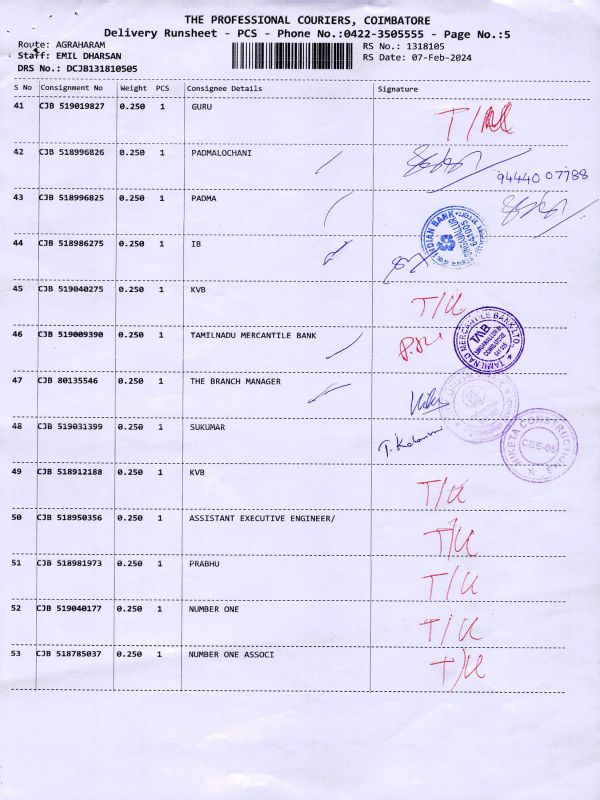 THE PROFESSIONAL COURIERS, COIMBATORE
Delivery Runsheet - PCS - Phone No.:0422-3505555 - Page No.:5
Route: AGRAHARAM RS No.: 1318105
Staff: EMIL DHARSAN RS Date: 07-Feb-2024
DRS No.: DCJB131810505
S No Consignment No Weight PCS Consignee Details Signature
41 CJB 519019827 0.250 1 GURU T/
42 CJB 518996826 0.250 1 PADMALOCHANI
94440 07788
43 CJB 518996825 0.250 1 PADMA
INDIAN BANK
SINGANALLUR
641005
44 CJB 518986275 0.250 1 IB
45 CJB 519040275 0.250 1 KVB T/U
46 CJB 519009390 0.250 1 TAMILNADU MERCANTILE BANK
TAMILNAD MERCANTILE BANK LTD.
TMB
47 CJB 80135546 0.250 1 THE BRANCH MANAGER
48 CJB 519031399 0.250 1 SUKUMAR
CBE-05
49 CJB 518912188 0.250 1 KVB T/U
50 CJB 518950356 0.250 1 ASSISTANT EXECUTIVE ENGINEER/ T/U
51 CJB 518981973 0.250 1 PRABHU T/U
52 CJB 519040177 0.250 1 NUMBER ONE T/U
53 CJB 518785037 0.250 1 NUMBER ONE ASSOCI T/U